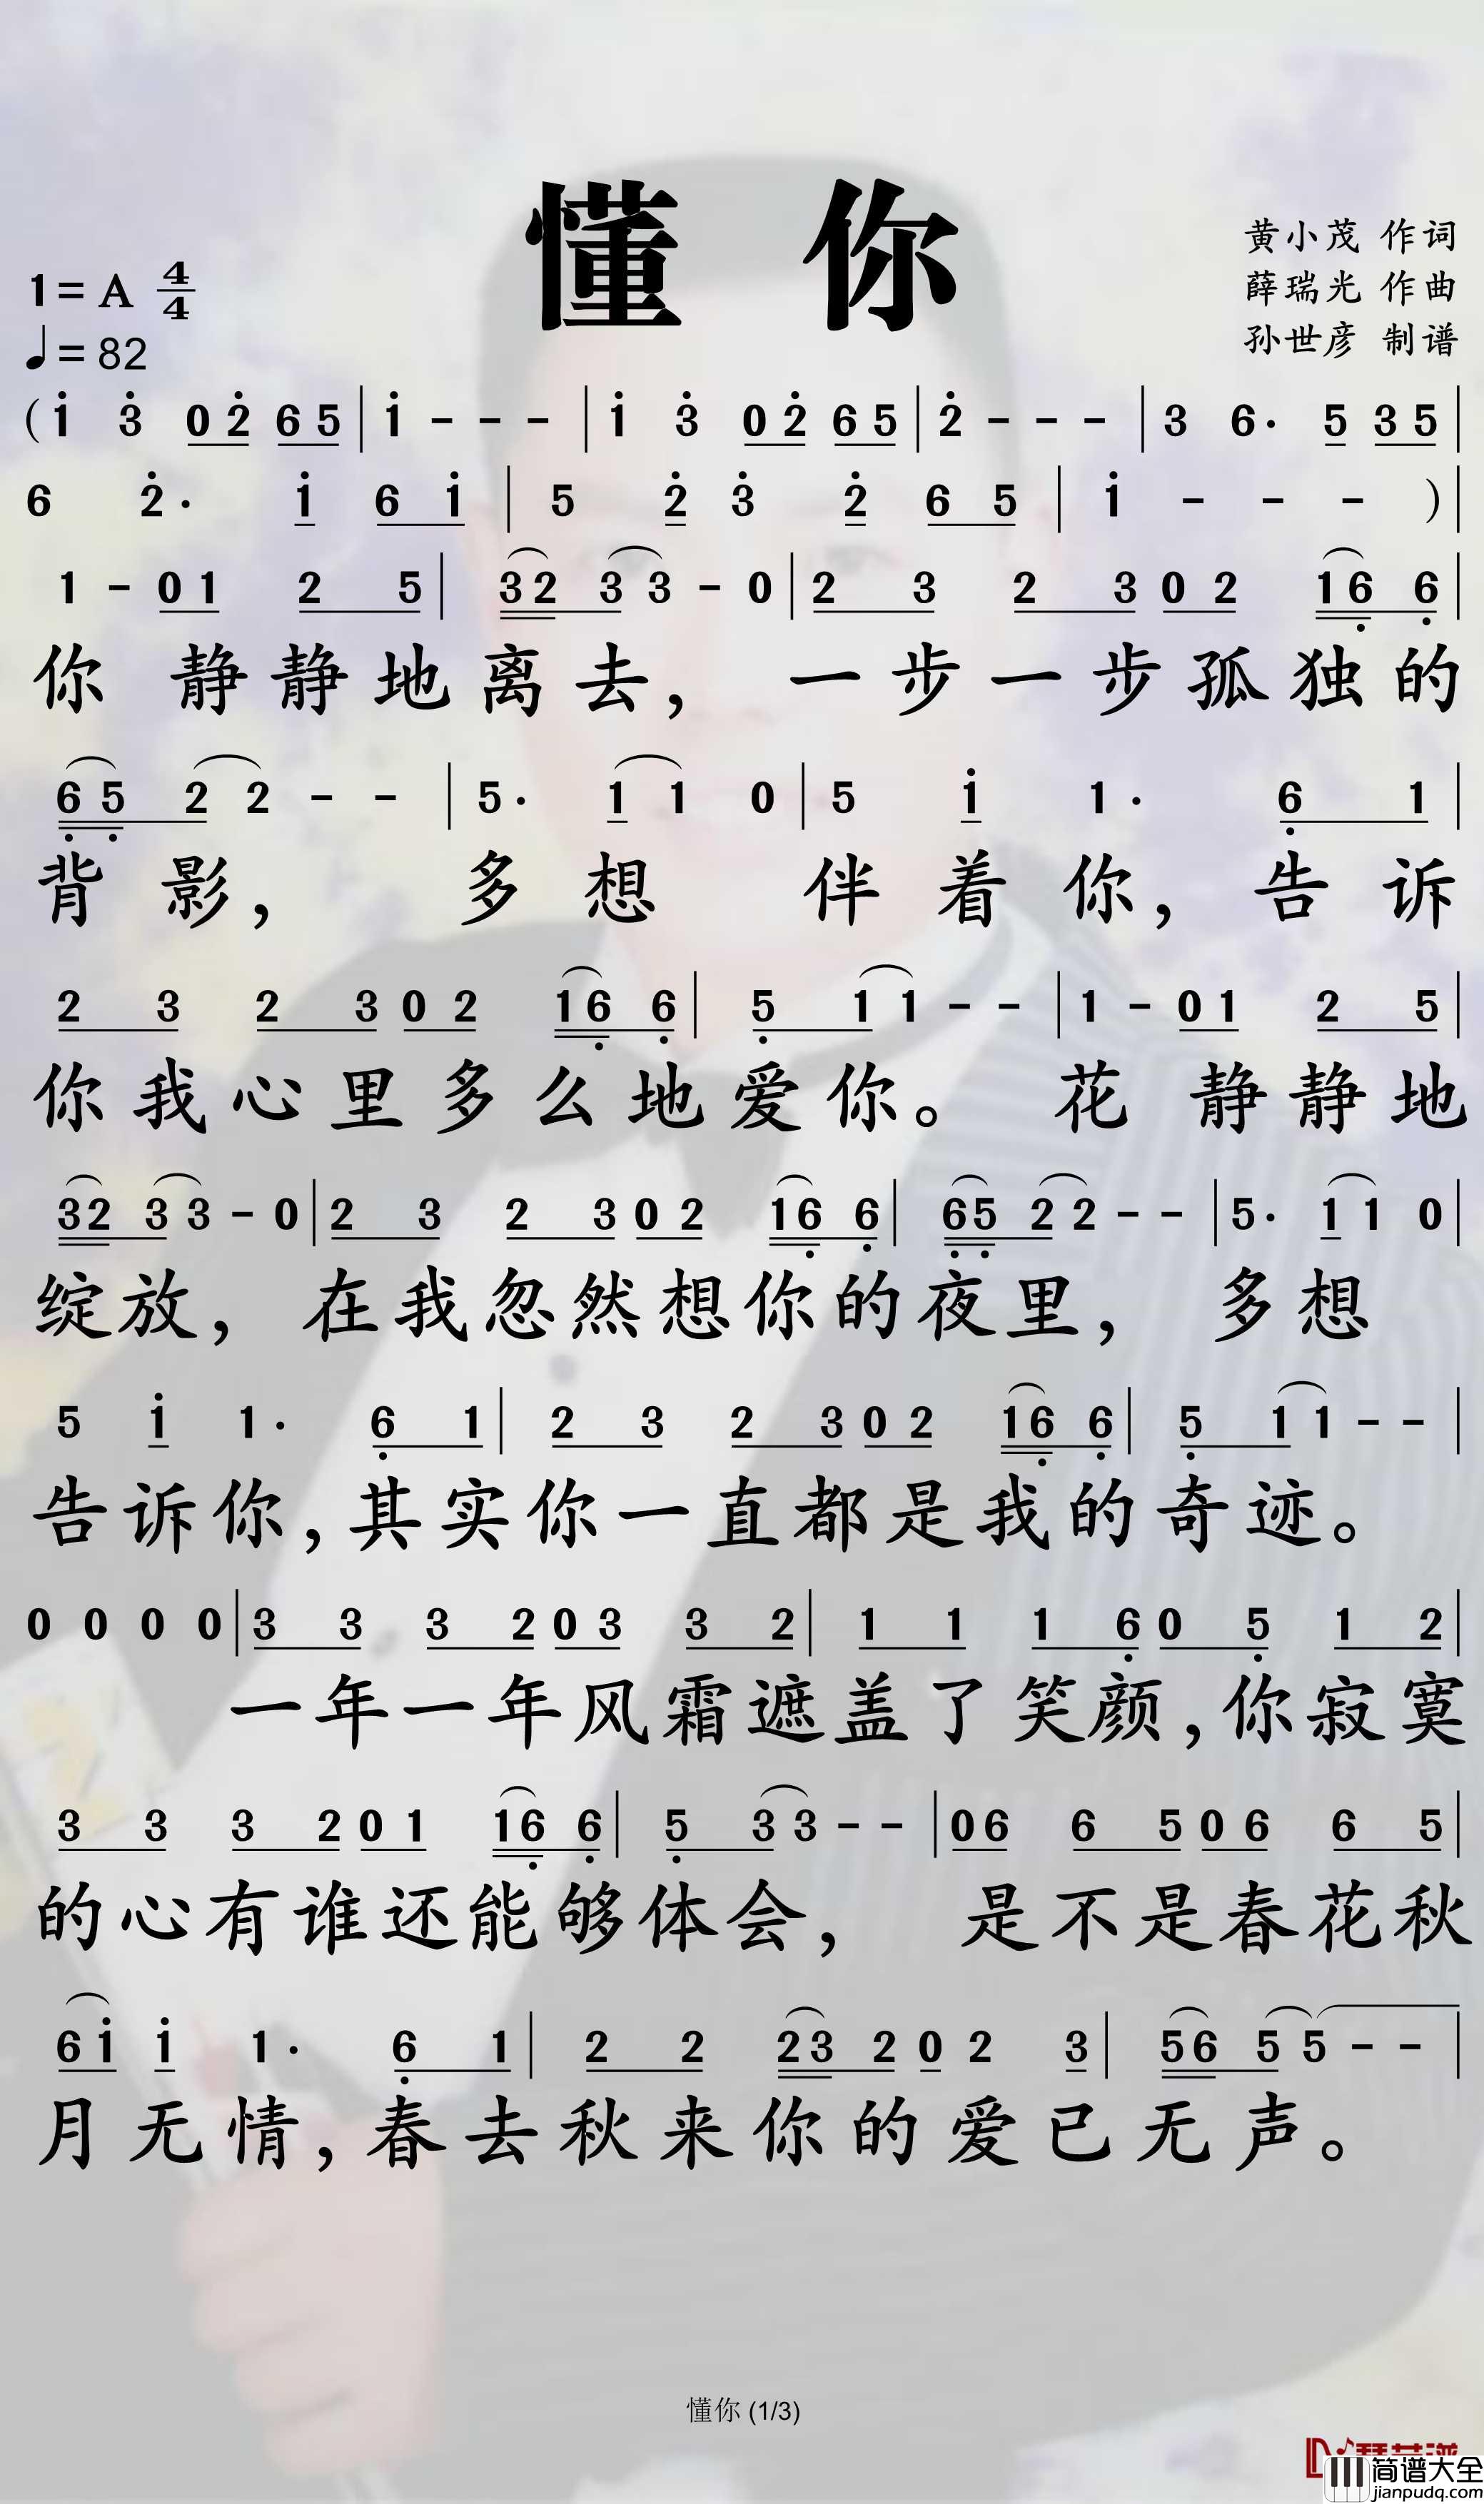 懂 你
黄小茂 作词
薛瑞光 作曲
孙世彦 制谱
1= A 4/4
♩= 82
( i̇ 3̇ 0 2̇ 6 5 | i̇ - - - | i̇ 3̇ 0 2̇ 6 5 | 2̇ - - - | 3 6· 5 3 5 |
6 2̇· i̇ 6 i̇ | 5 2̇ 3̇ 2̇ 6 5 | i̇ - - - ) |
1 - 0 1 2 5 | 3 2 3 3 - 0 | 2 3 2 3 0 2 1 6̣ 6̣ |
你 静 静 地 离 去， 一 步 一 步 孤 独 的
6̣ 5̣ 2 2 - - | 5· 1 1 0 | 5 i̇ 1· 6̣ 1 |
背 影， 多 想 伴 着 你，告 诉
2 3 2 3 0 2 1 6̣ 6̣ | 5̣ 1 1 - - | 1 - 0 1 2 5 |
你 我 心 里 多 么 地 爱 你。 花 静 静 地
3 2 3 3 - 0 | 2 3 2 3 0 2 1 6̣ 6̣ | 6̣ 5̣ 2 2 - - | 5· 1 1 0 |
绽 放， 在 我 忽 然 想 你 的 夜 里， 多 想
5 i̇ 1· 6̣ 1 | 2 3 2 3 0 2 1 6̣ 6̣ | 5̣ 1 1 - - |
告 诉 你，其 实 你 一 直 都 是 我 的 奇 迹。
0 0 0 0 | 3 3 3 2 0 3 3 2 | 1 1 1 6̣ 0 5̣ 1 2 |
一 年 一 年 风 霜 遮 盖 了 笑 颜，你 寂 寞
3 3 3 2 0 1 1 6̣ 6̣ | 5̣ 3 3 - - | 0 6 6 5 0 6 6 5 |
的 心 有 谁 还 能 够 体 会， 是 不 是 春 花 秋
6 i̇ i̇ 1· 6̣ 1 | 2 2 2 3 2 0 2 3 | 5 6 5 5 - - |
月 无 情，春 去 秋 来 你 的 爱 已 无 声。
懂你 (1/3)
简谱大全
jianpudq.com